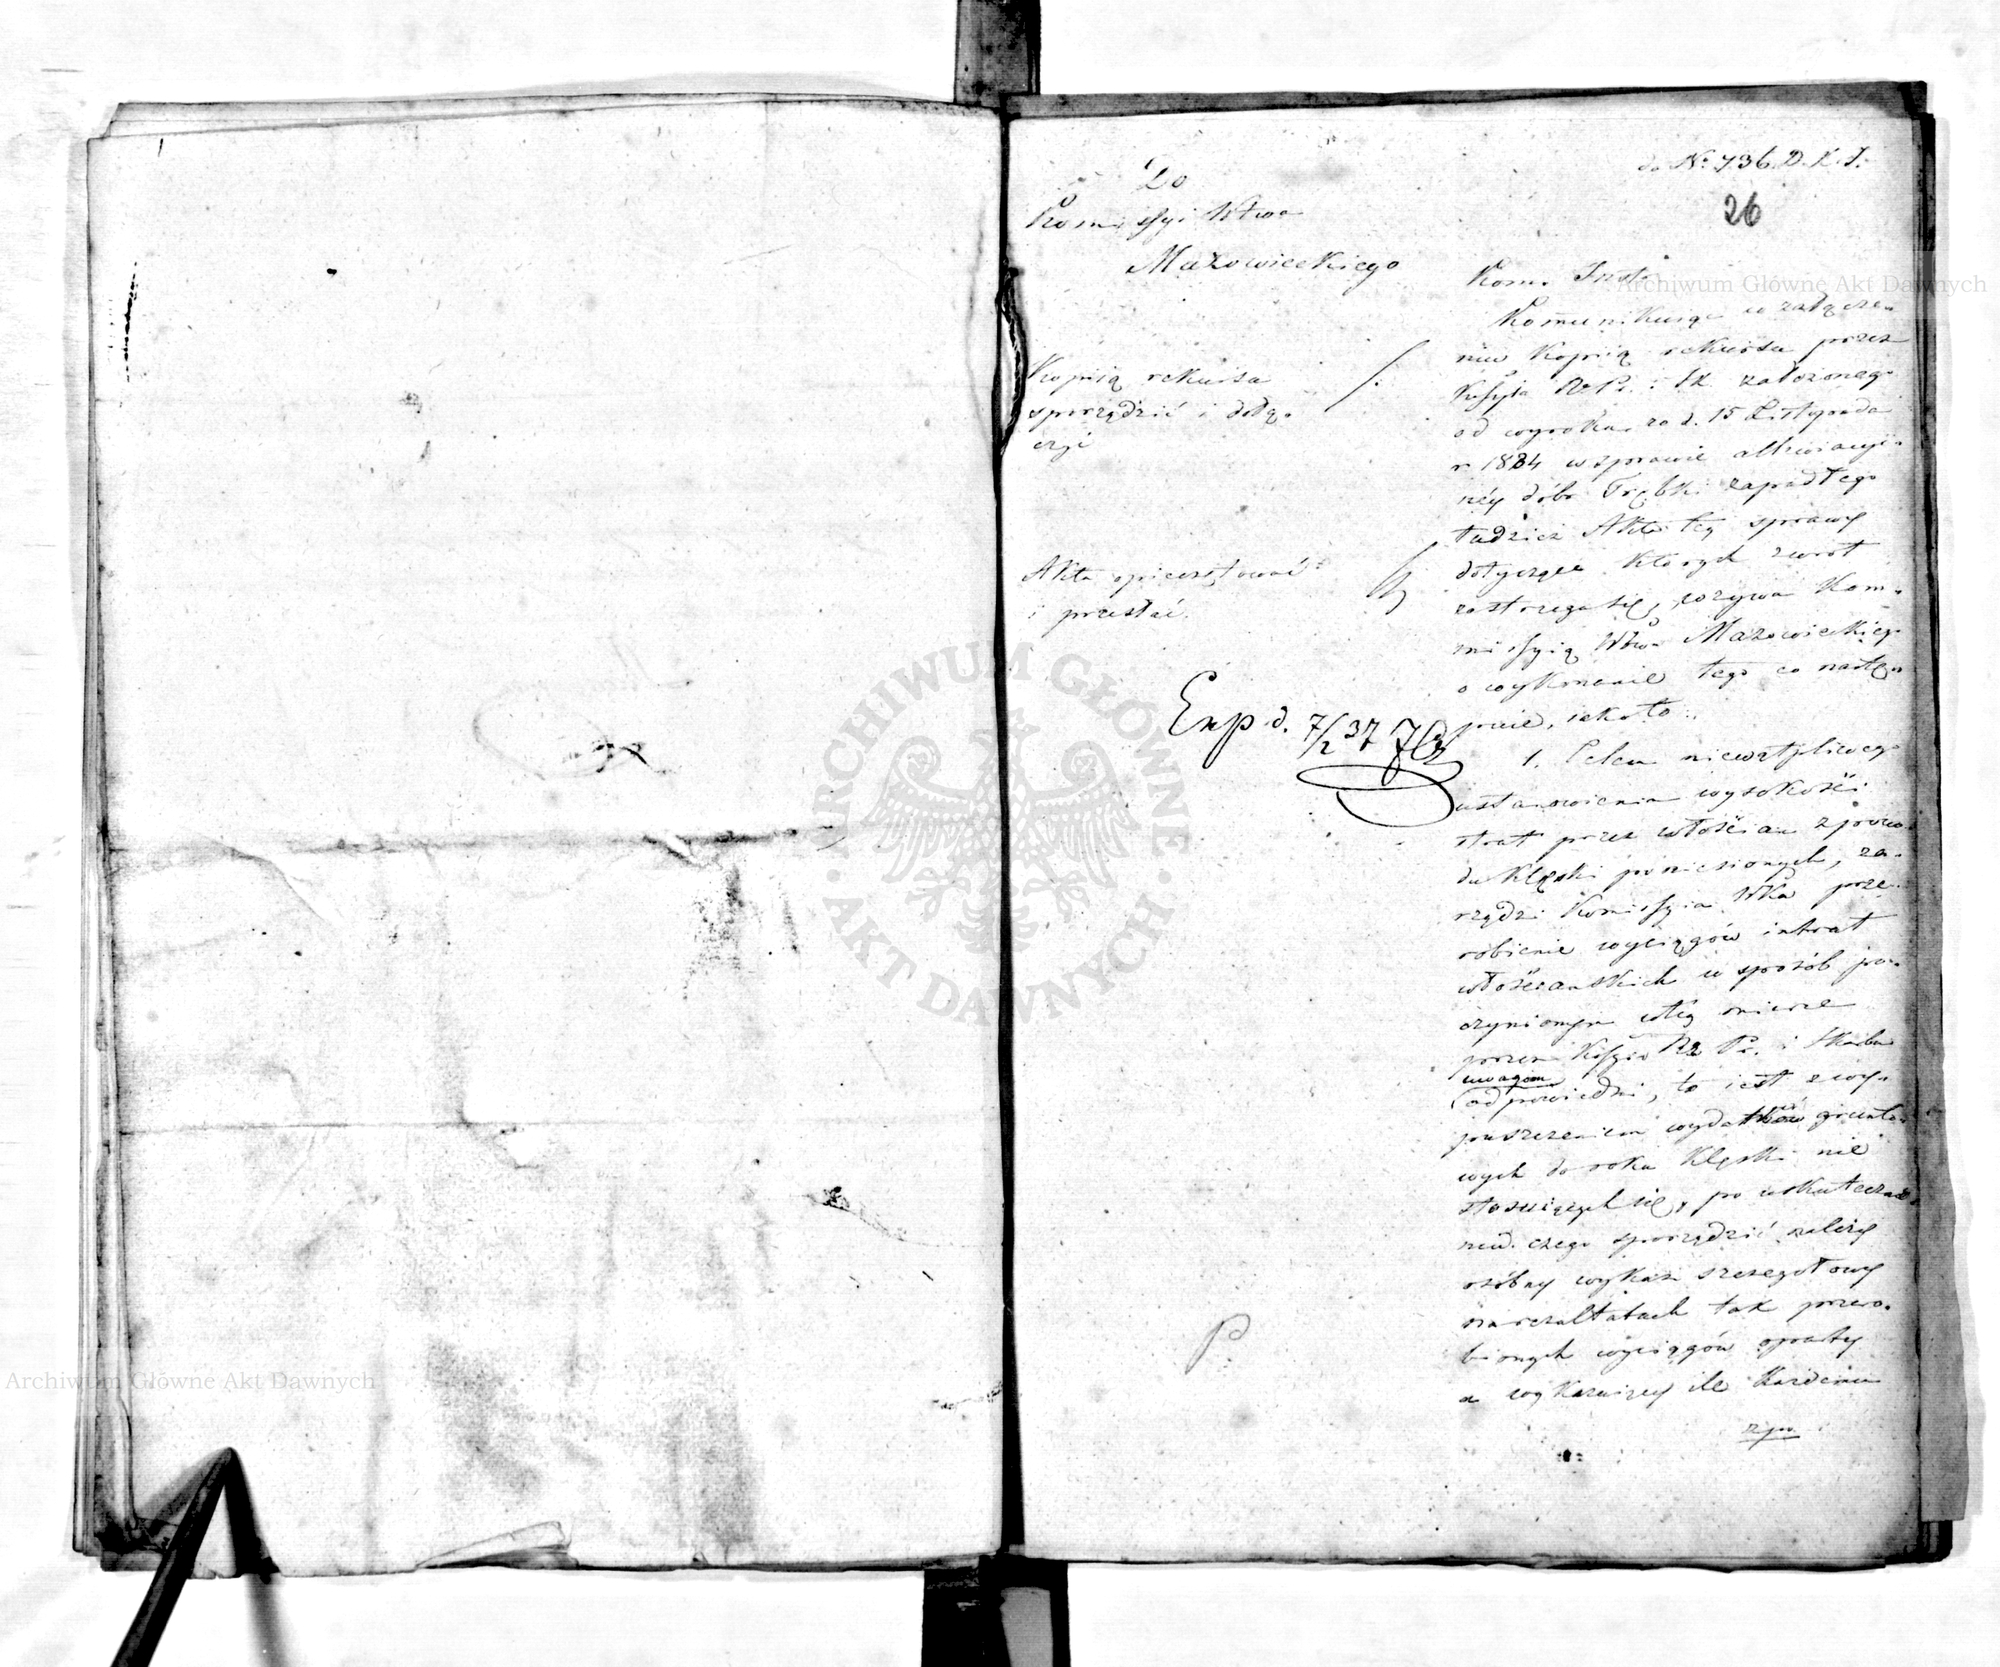 do No 736. D. K. I.
26
Do
Komissyi Wtwa
Mazowieckiego
Kopiią rekursu
sporządzić i dołą-
czyć
Akta opieczętować
i przesłać.
Exp. d. 7/2 37
P
Kom.
Kommunikuiąc w załącze-
niu kopiią rekursu przez
Kssyią R. P. i Sk. założonego
od wyroku z d. 15 Listopada
r. 1834 w sprawie allewiacyi-
néy dóbr Trębki zapadłego
tudzież Akta téy sprawy
dotyczące których zwrot
zastrzega się, wzywa Kom-
missyią Wtwa Mazowieckiego
o wykonanie tego co nastę-
puie, iako to:
1. Celem niewątpliwego
ustanowienia wysokości
strat przez włościan z powo-
du klęski poniesionych, za-
rządzi Komissyia Wtka prze-
robienie wyciągów intrat
włościańskich w sposób po-
czynionym w téy mierze
przez Kssyą Rz. Pr. i Skarbu
uwagom
odpowiedni, to iest z wy-
puszczeniem wydatków grunto-
wych do roku klęski nie
stosuiących się, po uskutecznie-
niu czego sporządzić należy
osóbny wykaz szczegółowy
na rezultatach tak przero-
bionych wyciągów oparty
a wykazuiący ile każdemu
z po
Archiwum Główne Akt Dawnych
Archiwum Główne Akt Dawnych
ARCHIWUM GŁÓWNE
AKT DAWNYCH